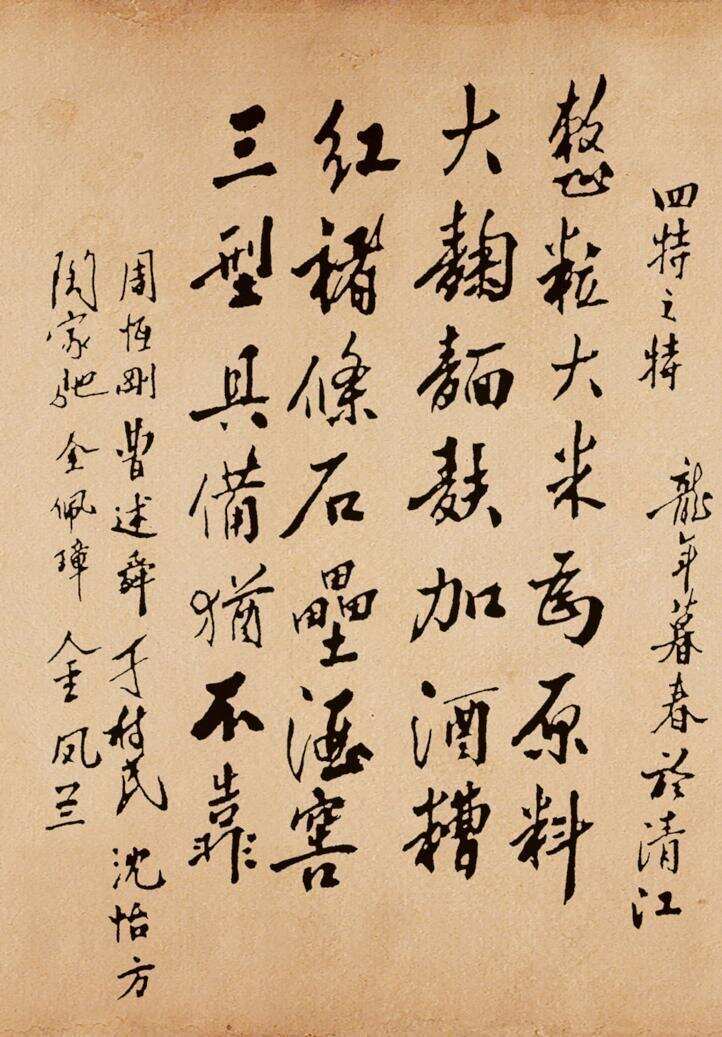 四特之特 龍年暮春於清江
整粒大米為原料
大麴麵麩加酒糟
红褚條石壘酒窖
三型具備猶不靠
周恆剛 曹述舜 于树民 沈怡方
陶家馳 全佩璋 金凤兰